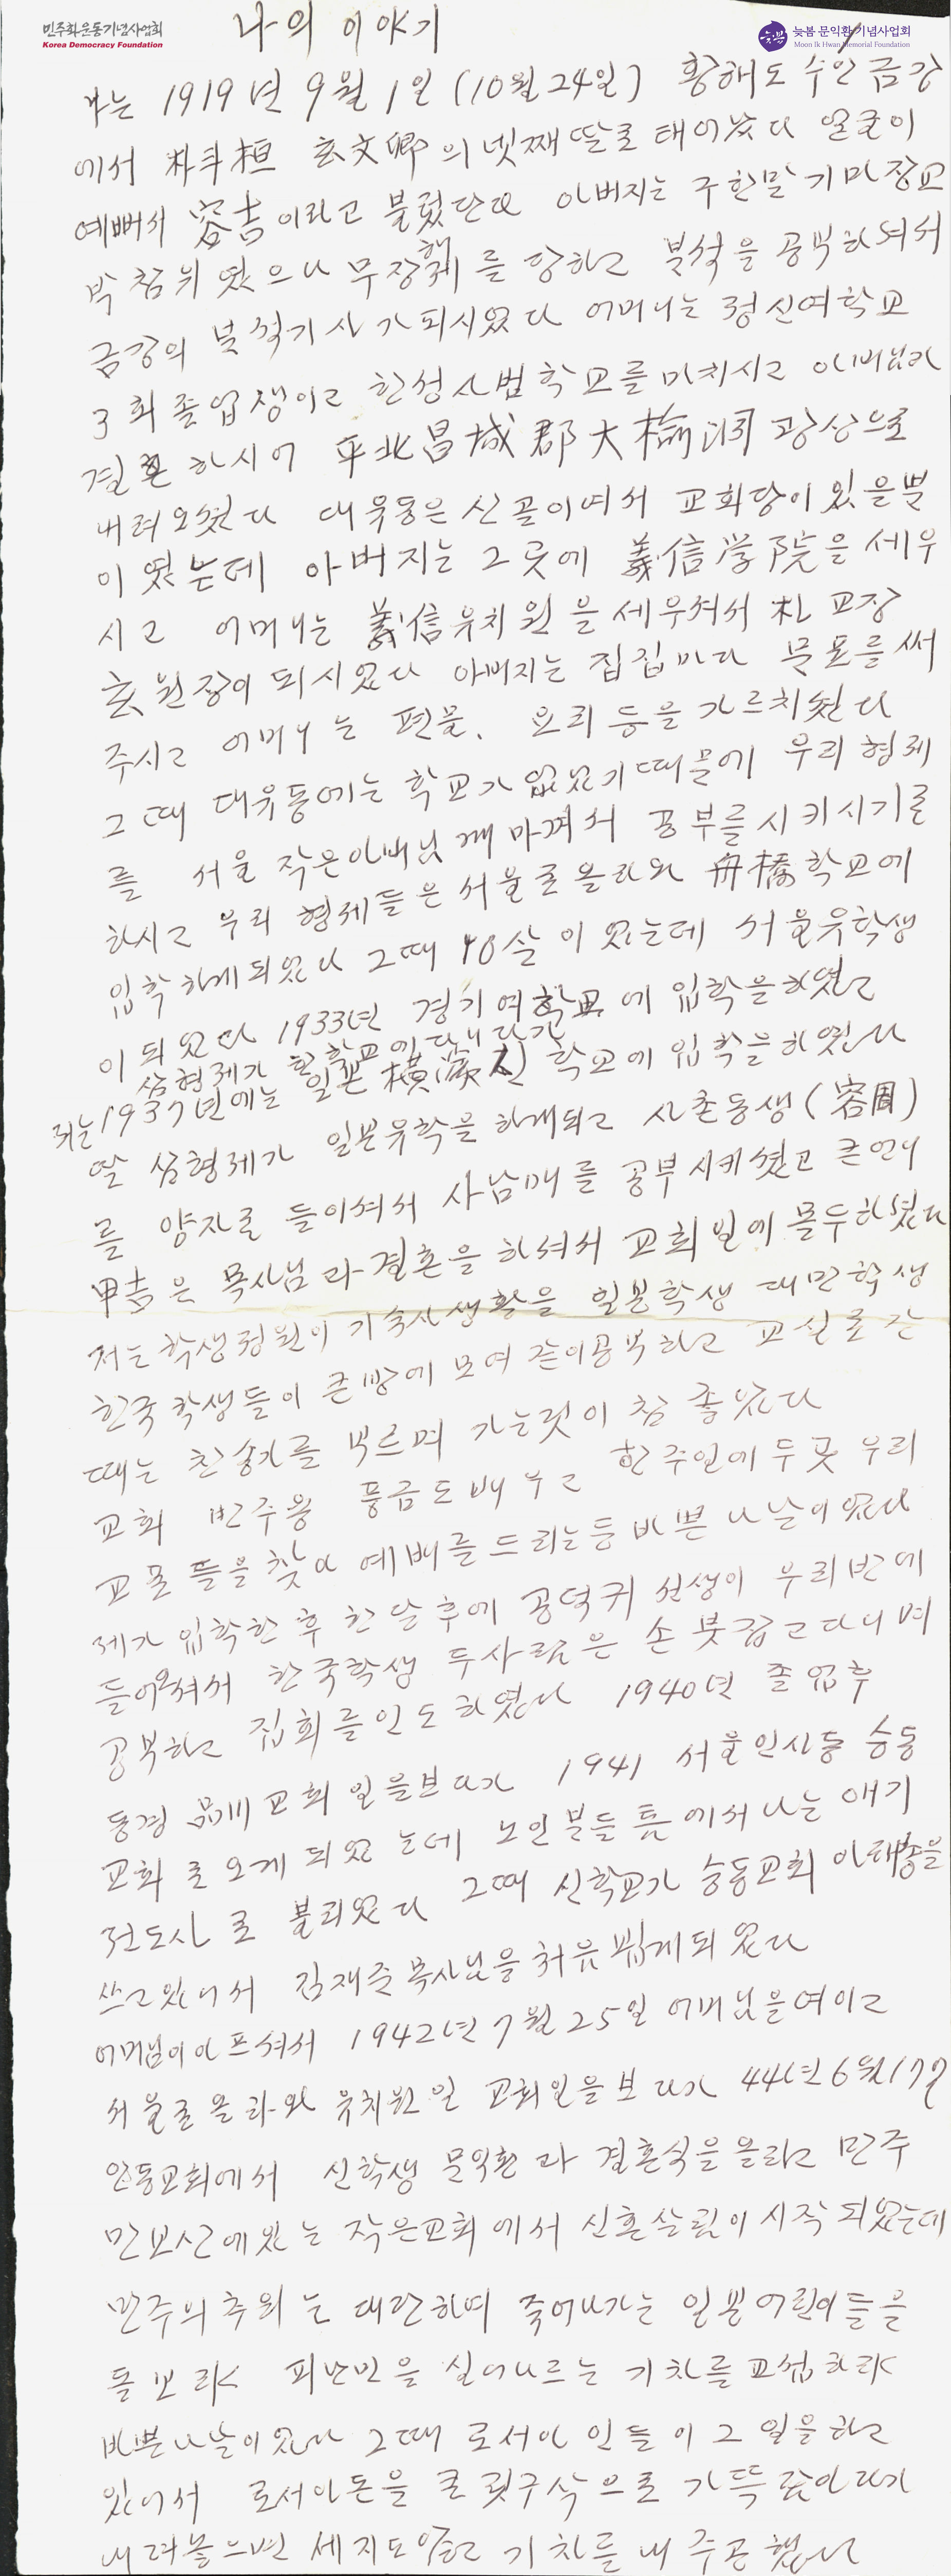 민주화운동기념사업회
Korea Democracy Foundation
늦봄 문익환 기념사업회
Moon Ik Hwan Memorial Foundation
나의 이야기
나는 1919년 9월 1일 (10월 24일) 황해도 수안 금강
에서 朴斗桓 玄文卿의 넷째 딸로 태어났다 얼굴이
예뻐서 容吉이라고 불렀단다 아버지는 구한말 기마장교
박참위 였으나 무장解를 당하고 분석을 공부하셔서
금강의 분석기사가 되시였다 어머니는 정신여학교
3회 졸업생이고 한성사범학교를 마치시고 아버님과
결혼하시어 平北昌城郡大楡洞 광산으로
내려오셨다 대유동은 산골이여서 교회당이 있을뿐
이였는데 아버지는 그곳에 義信学院을 세우
시고 어머니는 義信유치원을 세우셔서 朴교장
玄원장이 되시였다 아버지는 집집마다 문패를 써
주시고 어머니는 편물、 요리 등을 가르치셨다
그때 대유동에는 학교가 없었기 때문에 우리 형제
를 서울 작은아버님께 마껴서 공부를 시키시기로
하시고 우리 형제들은 서울로 올라와 舟橋학교에
입학하게 되였다 그때 10살이였는데 서울유학생
이 되였다 1933년 경기여학교에 입학을 하였고
삼형제가 한학교에 다니다가
저는 1937년에는 일본 橫濱 학교에 입학을 하였다
딸 삼형제가 일본유학을 하게되고 사촌동생(容周)
를 양자로 들이셔서 사남매를 공부시키셨고 큰언니
甲吉은 목사님과 결혼을 하셔서 교회일에 몰두하셨다
저는 학생정원이 기숙사생활을 일본학생 대만학생
한국학생들이 큰방에 모여 같이공부하고 교실로 갈
때는 찬송가를 부르며 가는것이 참 좋았다
교회 반주용 풍금도 배우고 한주일에 두곳 우리
교포들을 찾아 예배를 드리는 등 바쁜 나날이였다
제가 입학한 후 한달 후에 공덕귀 선생이 우리반에
들어오셔서 한국학생 두사람은 손붓잡고 다니며
공부하고 집회를 인도하였다 1940년 졸업후
동경 品川교회 일을보다가 1941 서울인사동 승동
교회로 오게 되였는데 노인분들 틈에서 나는 애기
전도사로 불리였다 그때 신학교가 승동교회 아래층을
쓰고있어서 김재준목사님을 처음 뵙게되였다
어머님이 아프셔서 1942년 7월 25일 어머님을여이고
서울로 올라와 유치원일 교회일을 보다가 44년 6월 17일
안동교회에서 신학생 문익환과 결혼식을 올리고 만주
만보산에있는 작은교회에서 신혼살림이 시작되였는데
만주의 추위는 대단하여 죽어나가는 일본어린이들을
돌보랴 피난민을 실어나르는 기차를 교섭하랴
바쁜나날이였다 그때 로서아인들이 그 일을 하고
있어서 로서아돈을 큰 륙구삭으로 가득 담아다가
내려놓으면 세지도않고 기차를 내 주곤했다